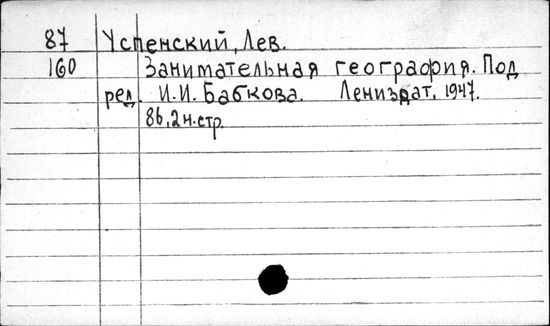 87 Успенский, Лев.
160 Занимательная география. Под
ред. И.И. Бабкова. Лениздат. 1947.
86, 2 н. стр.